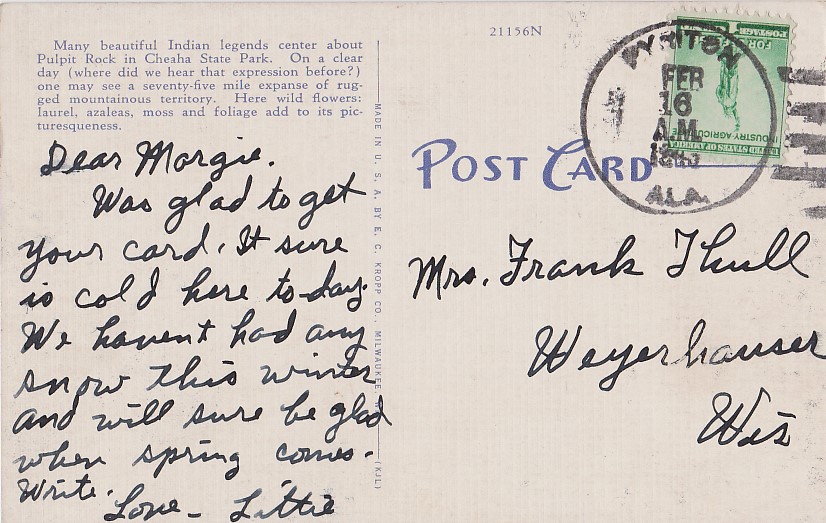 Many beautiful Indian legends center about
Pulpit Rock in Cheaha State Park. On a clear
day (where did we hear that expression before?)
one may see a seventy-five mile expanse of rug-
ged mountainous territory. Here wild flowers:
laurel, azaleas, moss and foliage add to its pic-
turesqueness.
Dear Margie.
Was glad to get
your card. It sure
is cold here to day.
We havent had any
snow this winter
and will sure be glad
when spring comes.
Write.
Love - Littie
MADE IN U. S. A. BY E. C. KROPP CO., MILWAUKEE
(KJL)
21156N
POST CARD
FEB
16
A.M.
ALA.
UNITED STATES OF AMERICA
INDUSTRY AGRICULTURE
FOR
POSTAGE
Mrs. Frank Thull
Weyerhauser
Wis